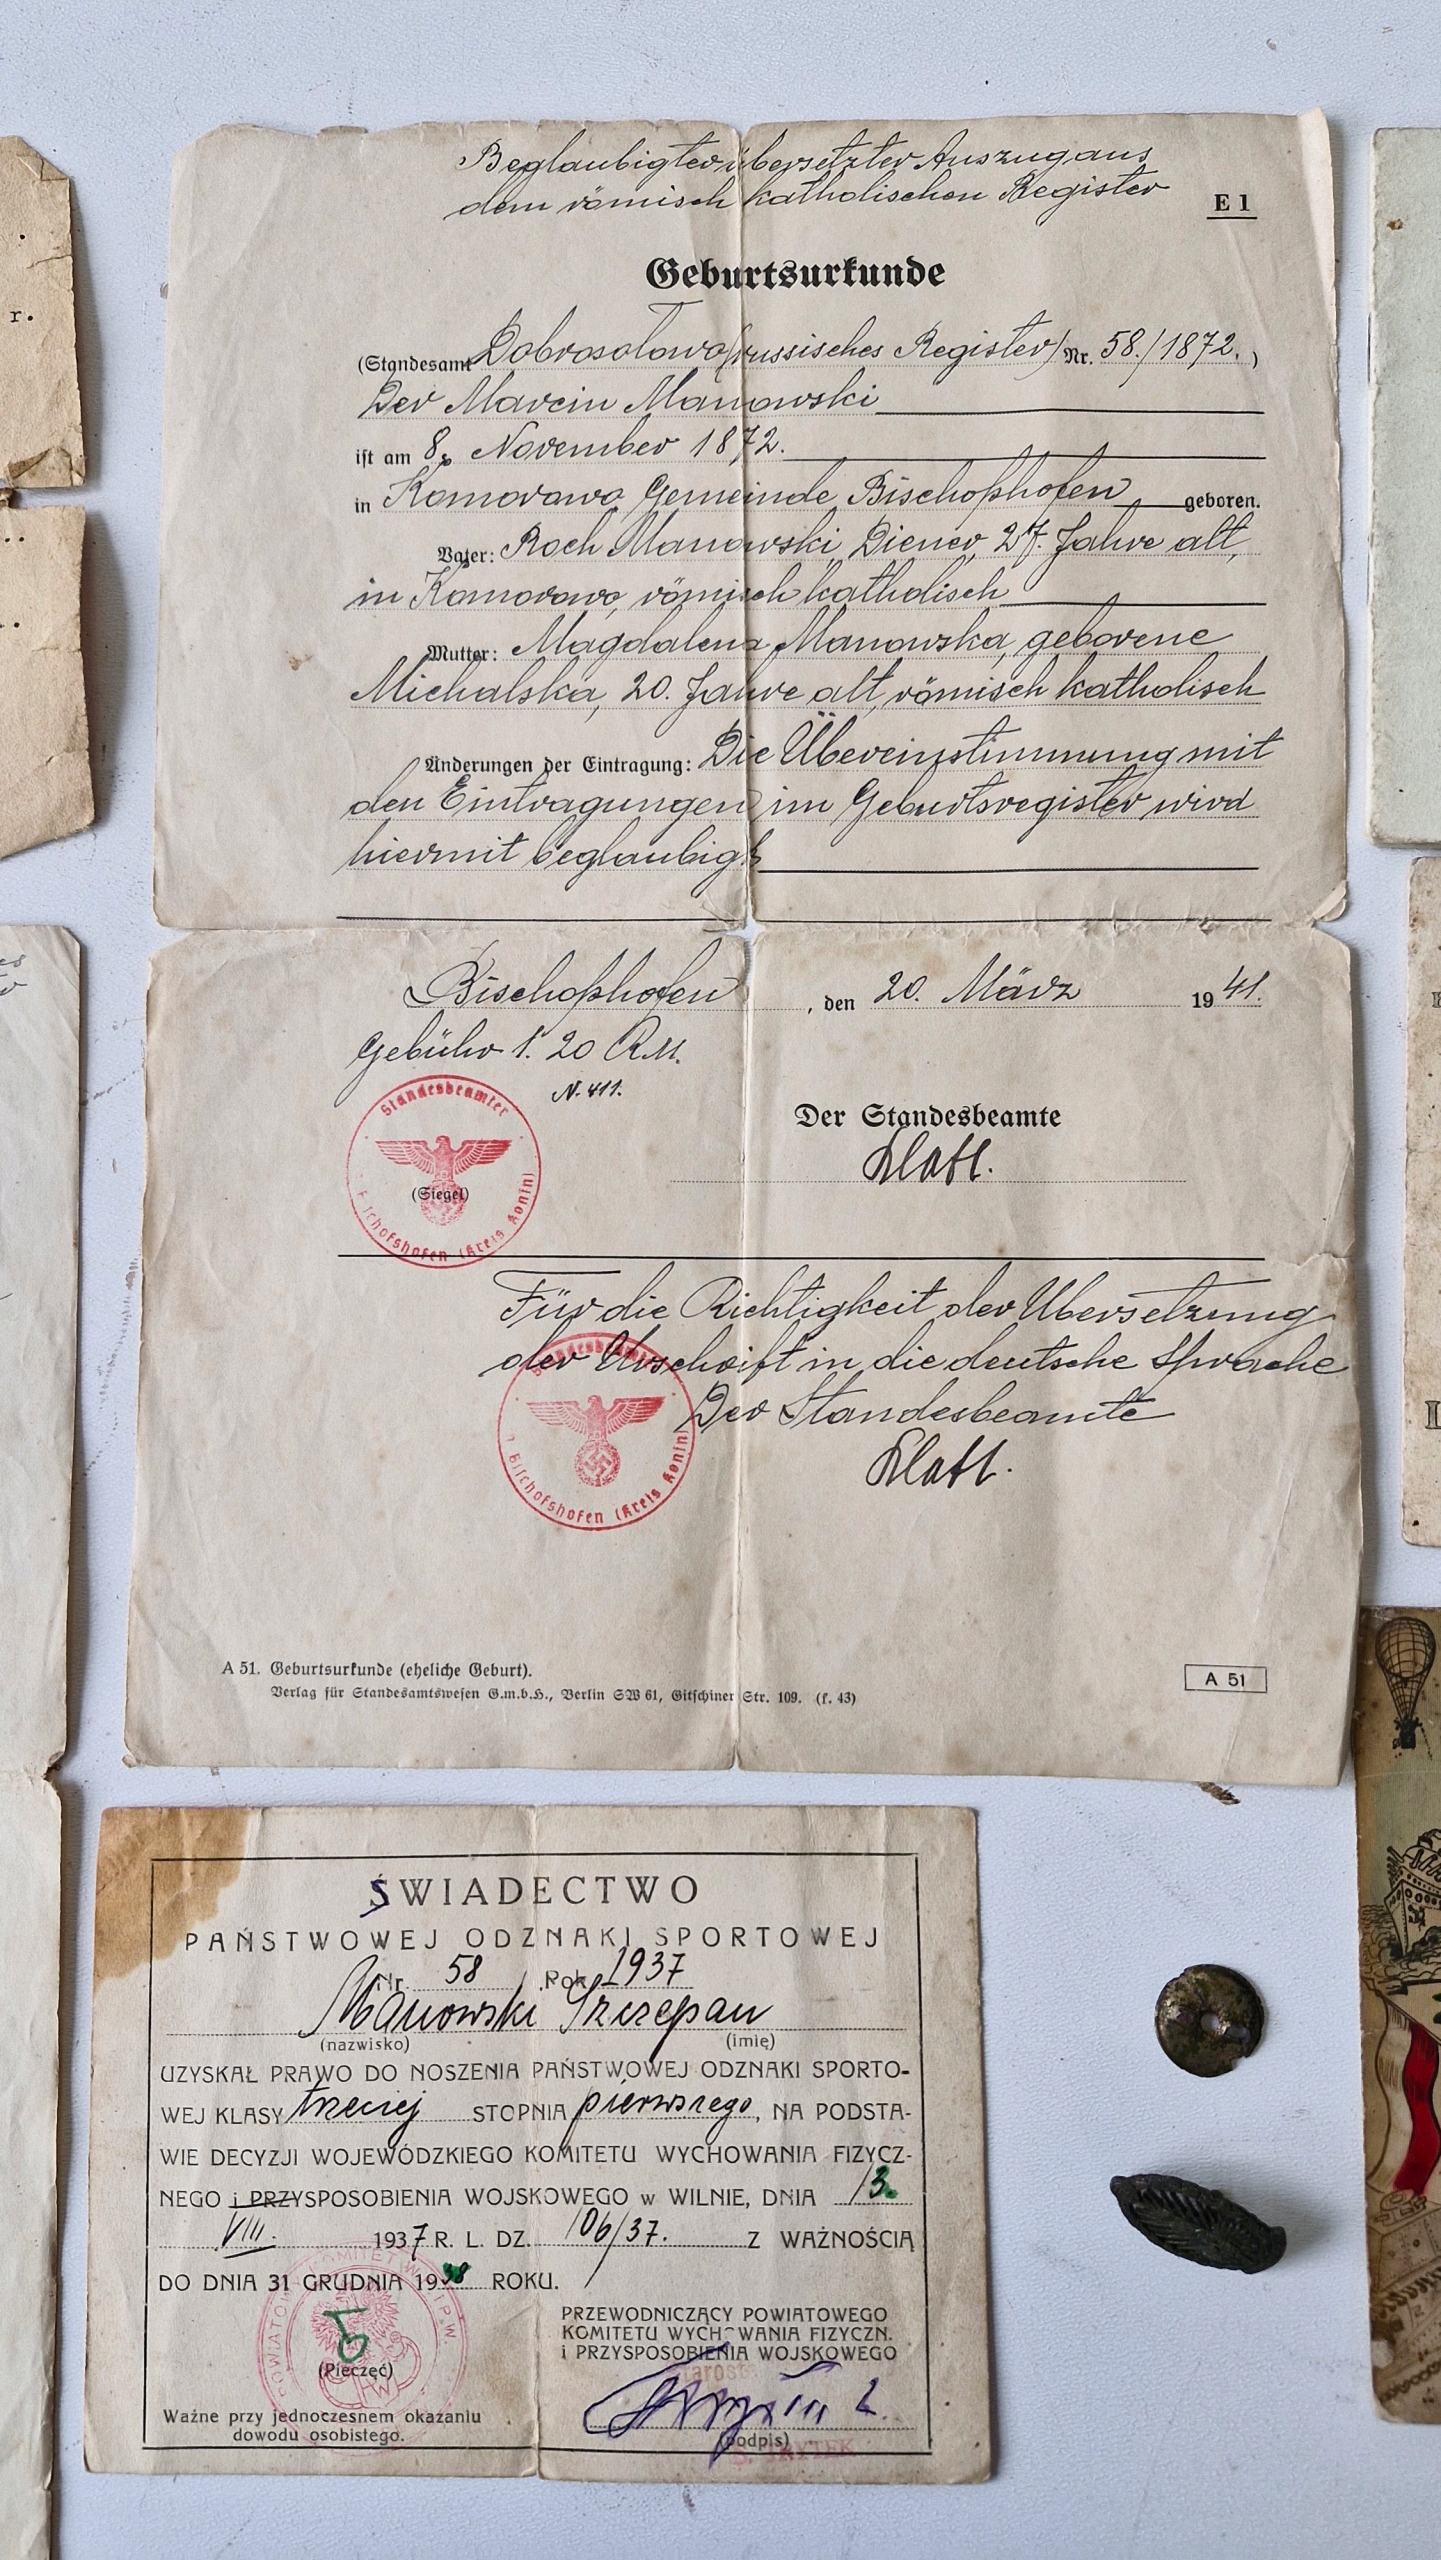 Beglaubigter übersetzter Auszug aus
dem römisch katholischen Register
E 1
Geburtsurkunde
(Standesamt Dobrosolowo (russisches Register) Nr. 58./1872.)
Der Marcin Manowski
ist am 8. November 1872.
in Komorowo, Gemeinde Bischofshofen geboren.
Vater: Roch Manowski, Diener, 27. Jahre alt,
in Komorowo, römisch katholisch
Mutter: Magdalena Manowska, geborene
Michalska, 20. Jahre alt, römisch katholisch
Änderungen der Eintragung: Die Übereinstimmung mit
den Eintragungen im Geburtsregister wird
hiermit beglaubigt
Bischofshofen, den 20. März 1941.
Gebühr 1. 20 R.M.
N. 411.
Standesbeamter
(Siegel)
Bischofshofen (Kreis Konin)
Der Standesbeamte
Für die Richtigkeit der Übersetzung
der Urschrift in die deutsche Sprache
Der Standesbeamte
Standesbeamter
Bischofshofen (Kreis Konin)
A 51. Geburtsurkunde (eheliche Geburt).
Verlag für Standesamtswesen G.m.b.H., Berlin SW 61, Gitschiner Str. 109. (k. 43)
A 51
ŚWIADECTWO
PAŃSTWOWEJ ODZNAKI SPORTOWEJ
Nr. 58 Rok 1937
Manowski Szczepan
(nazwisko) (imię)
UZYSKAŁ PRAWO DO NOSZENIA PAŃSTWOWEJ ODZNAKI SPORTO-
WEJ KLASY trzeciej STOPNIA pierwszego, NA PODSTA-
WIE DECYZJI WOJEWÓDZKIEGO KOMITETU WYCHOWANIA FIZYCZ-
NEGO i PRZYSPOSOBIENIA WOJSKOWEGO w WILNIE, DNIA 13.
VIII. 1937 R. L. DZ. 106/37. Z WAŻNOŚCIĄ
DO DNIA 31 GRUDNIA 1938 ROKU.
PRZEWODNICZĄCY POWIATOWEGO
KOMITETU WYCHOWANIA FIZYCZN.
i PRZYSPOSOBIENIA WOJSKOWEGO
(Pieczęć)
Ważne przy jednoczesnem okazaniu
dowodu osobistego.
(podpis)